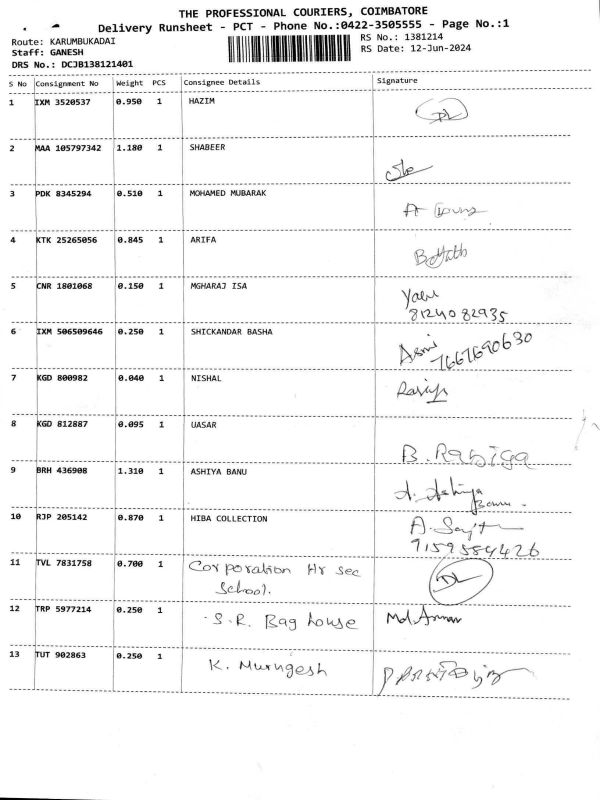 THE PROFESSIONAL COURIERS, COIMBATORE
Delivery Runsheet - PCT - Phone No.:0422-3505555 - Page No.:1
Route: KARUMBUKADAI RS No.: 1381214
Staff: GANESH RS Date: 12-Jun-2024
DRS No.: DCJB138121401
S No Consignment No Weight PCS Consignee Details Signature
1 IXM 3520537 0.950 1 HAZIM DL
2 MAA 105797342 1.180 1 SHABEER
3 PDK 8345294 0.510 1 MOHAMED MUBARAK
4 KTK 25265056 0.845 1 ARIFA
5 CNR 1801068 0.150 1 MGHARAJ ISA
8124082935
6 IXM 506509646 0.250 1 SHICKANDAR BASHA Asmi
7667690630
7 KGD 800982 0.040 1 NISHAL
8 KGD 812887 0.095 1 UASAR
B. Raziga
9 BRH 436908 1.310 1 ASHIYA BANU
A. Ashiya
Banu.
10 RJP 205142 0.870 1 HIBA COLLECTION
9159584426
11 TVL 7831758 0.700 1 Corporation Hr sec
School. DL
12 TRP 5977214 0.250 1 S.R. Bag house Md.Arman
13 TUT 902863 0.250 1 K. Murugesh